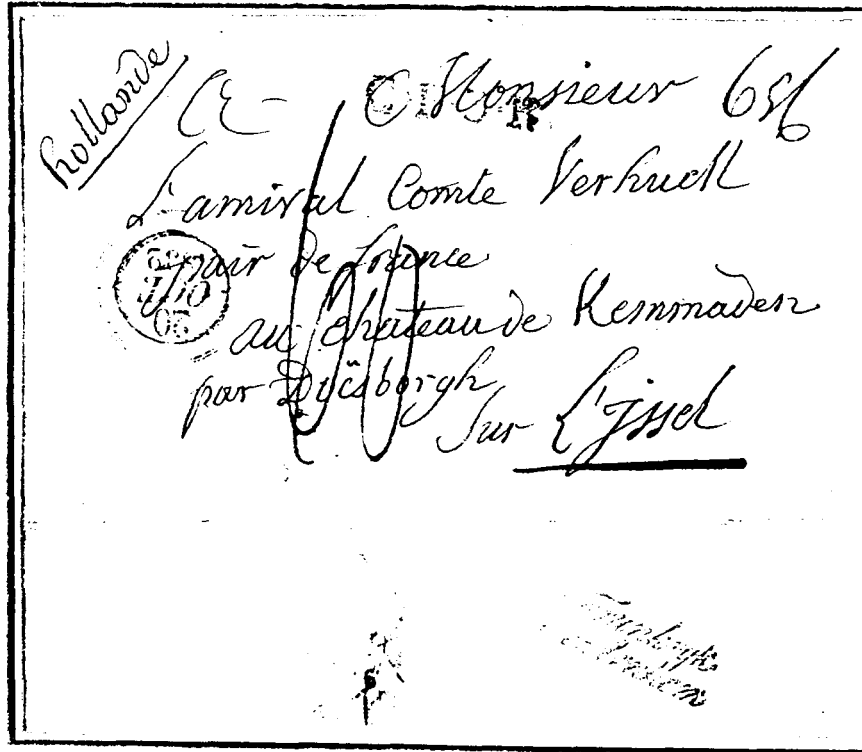 hollande
A Monsieur 656
L'amiral Comte Verhuell
pair de france
au chateau de Kemmaden
par Duësborgh
Sur L'yssel
60